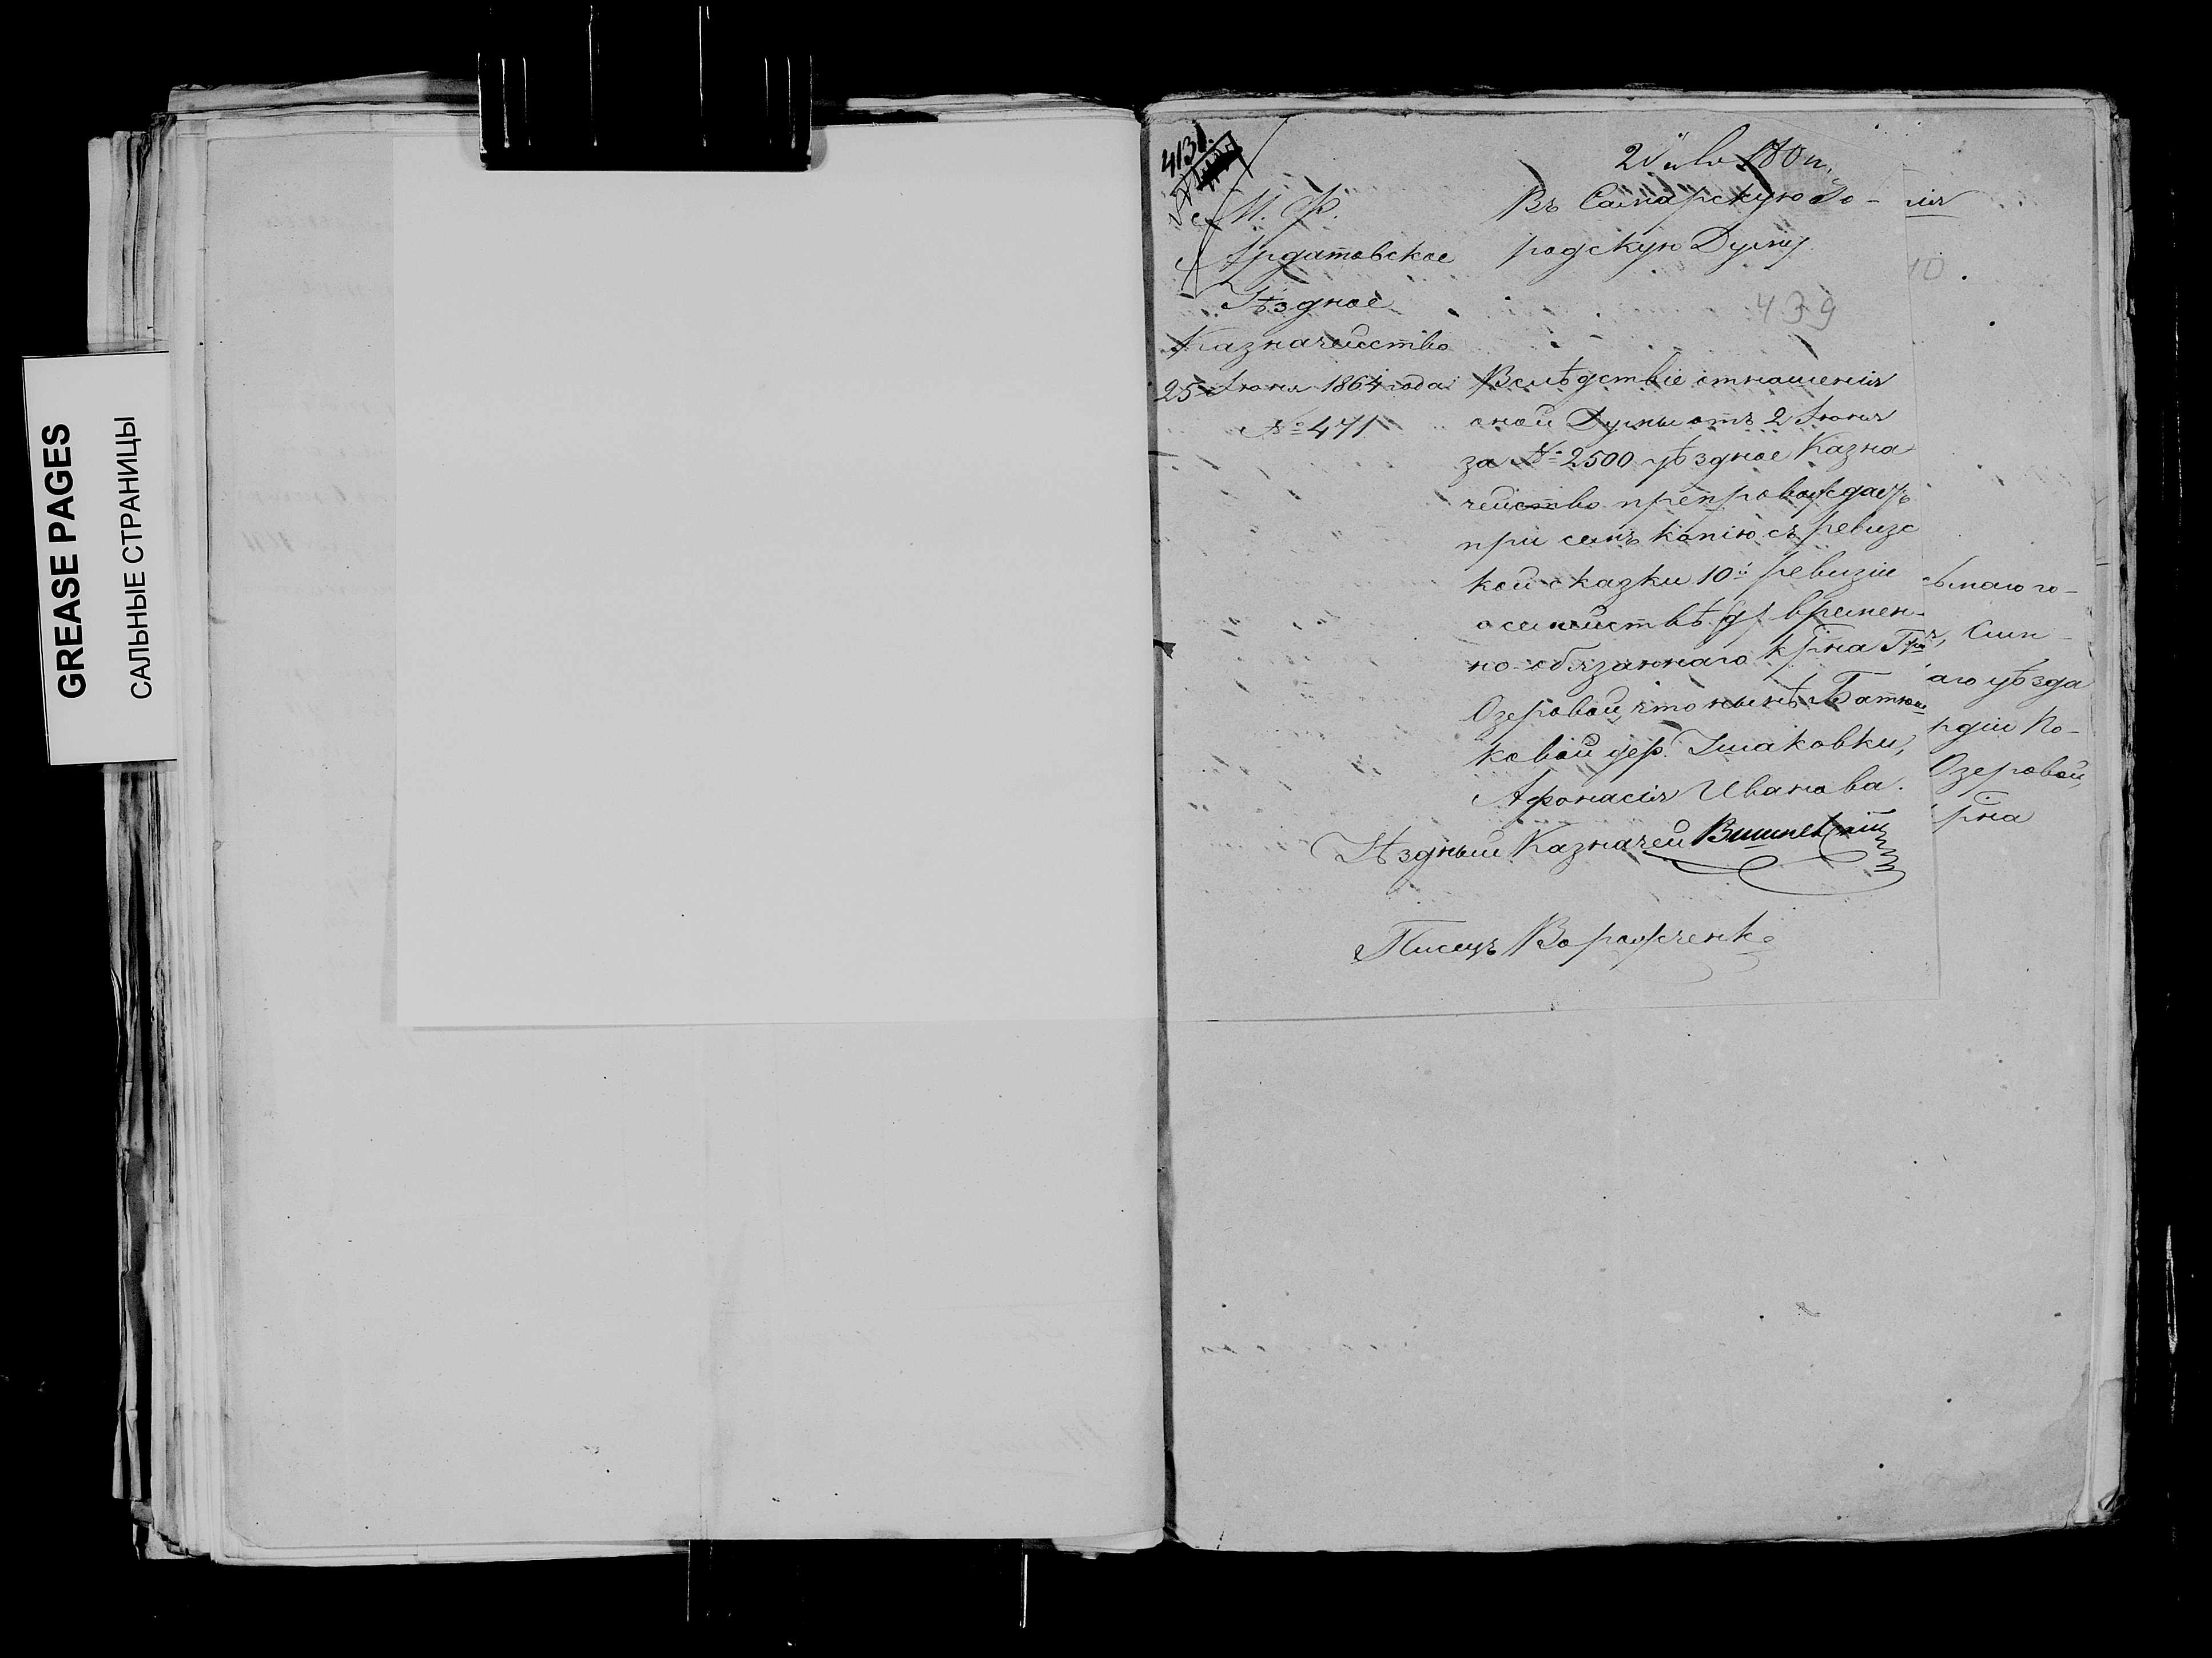 GREASE PAGES
САЛЬНЫЕ СТРАНИЦЫ
4131.
М. Ф.
Ардатовское
Уѣздное
Казначейство
25 Іюня 1864 года
№ 471
Въ Самарскую Го-
родскую Думу
439
Вслѣдствіе отношенія
оной Думы отъ 2 Іюня
за № 2500 уѣздное Казна
чейство препровождаетъ
при семъ копію съ ревизс
кой сказки 10й ревизіи
о семействѣ времен-
но-обязаннаго крна Гжи
Озеровой, что нынѣ Батюш
ковой дер. Ушаковки,
Афонасія Иванова.
Уѣздный Казначей
Писецъ
10
ьмаго го-
Сим-
аго уѣзда
рдіи По-
Озеровой,
рна